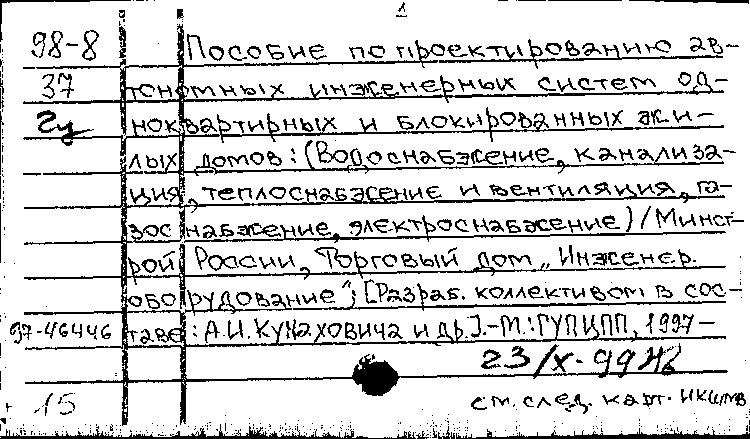 1
98-8 Пособие по проектированию ав-
37 тономных инженерных систем од-
ноквартирных и блокированных жи-
лых домов: (Водоснабжение, канализа-
ция, теплоснабжение и вентиляция, га-
зоснабжение, электроснабжение) / Минст-
рой России, Торговый дом „Инженер.
оборудование"; [Разраб. коллективом в сос-
97-46446 таве: А.И. и др.].-М.: ГУПЦПП, 1997-
23/X-99
15 см. след. карт.